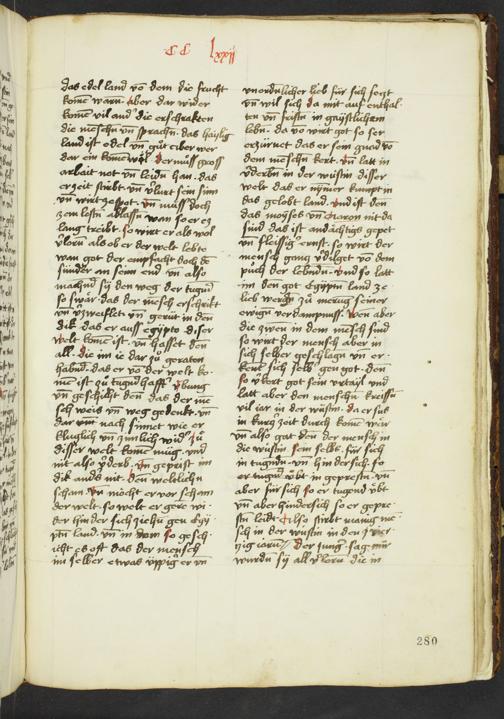 CC lxxij
das edel land vō dem die frucht
komē warn · aber dar wider
komē vil and die erschrakten
die menschn vn̄ sprachn · das
land ist edel vn̄ gůt aber wer
dar ein komē wil · Der můß gross
arbait not vn̄ leidn han · das
er zeit stirbt vn̄ v̓lurt sein sinn
můß doch
zem lestn ablassn wan so er es
lang treibt · so wirt er als wol
v̓lorn als ob er der welt lebte
wan got der empfacht doch dē
sünder an seim end vn̄ also
machnd sÿ den weg der tugnd
so swär das der mēsch erschrikt
vn̄ v̓zweiflet vn̄ gerüt in den
dik das er auss egypto diser
welt komē ist · vn̄ hasset den
all · die im ie dar zů geraten
habnd · das er vō der welt ko
mē ist zů tugndhafft v̓bung
vn̄ geschillt den das der mē
sch weis vn̄ weg gedenkt · vn̄
dar vm̄ nach sinnet wie er
kluglich vn̄ zimlich wid̓ zů
diser welt komē müg · vnd
nit also v̓derb · vn̄ geprist im
dik ande nit · den weltlichn
scham · vn̄ möcht er vor scham
der welt · so wolt er gern wi
der hinder sich ziehn gen Egÿ
ptn land · vn̄ in dem so gesch
icht es oft das der mensch
im selber etwas üppig er vn̄
vnordnlicher lieb für sich setzt
vn̄ wil sich da mit auf enthal
ten vn̄ fristn in gaÿstlichem
lebn · da vō wirt got so ser
erzürnet das er sein gnad vō
dem menschn kert · vn̄ latt in
v̓derbn in der wüstin diser
welt das er nÿmer kumpt in
das gelobt land · vnd ist den
das moÿses vn̄ Aaron nit da
sind das ist andächtigs gepet
vn̄ fleissig ernst · so wirt der
mensch gancz v̓dilget vō dem
půch der lebndn · vnd so latt
im den got Egiptn land ze
lieb werdn zů merūg seiner
ewign verdampnuss · wen aber
die zwen in dem mēsch sind
so wirt der mensch aber in
sich selber geschlagn vn̄ er
kent sich selb gen got · den
so v̓kert got sein vrtayl vnd
latt aber den menschn
vil iar in der wüstin · da er sus
in kurtz zeit durch komē wär
vn̄ also gat den der mensch in
die wüstin sein selbs · für sich
in tugndn · vn̄ hinder sich · so
er tugnd v̓bt in geprestn · vn̄
aber für sich so er tugnd v̓bt
vn̄ aber hindersich so er gepre
stn leidt · Also stirbt manig mē
sch in der wüstin in den
zig iarn // der jung̓ · sag mir
wurdn sÿ all v̓lorn die in
280